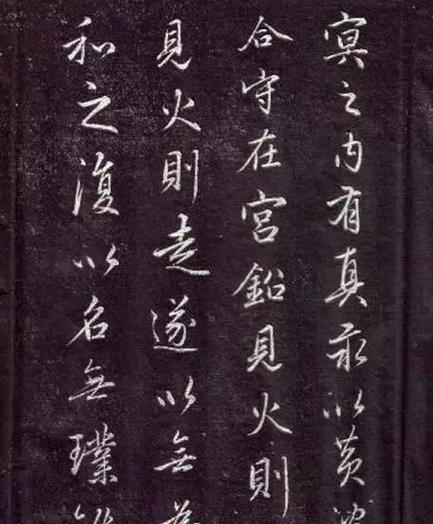 冥之内有真汞以黄
合守在宫鉛見火則
見火則走遂以無為
和之復以名無璞